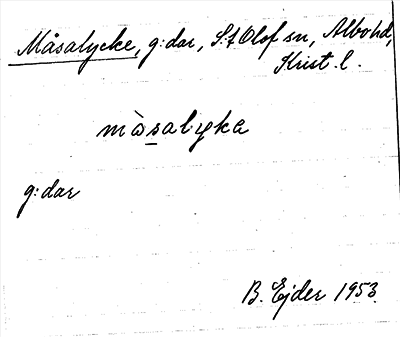 Måsalycke, g:dar, S:t Olof sn, Albo hd,
Krist. l.
mɷ̀salyka
g:dar
B. Ejder 1953